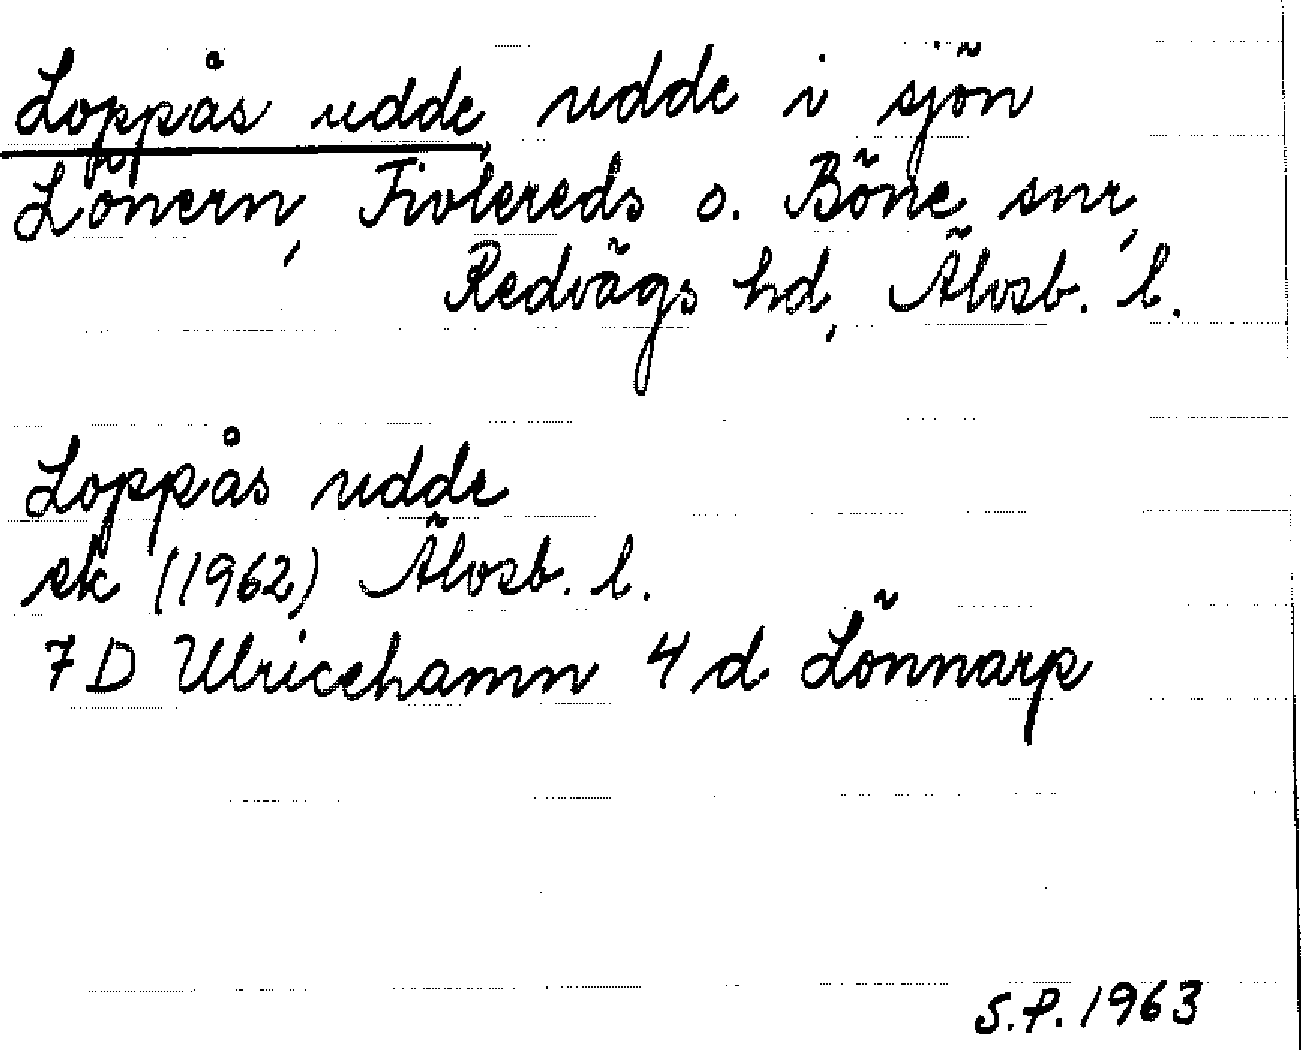 Loppås udde, udde i sjön
Lönern, Tivlereds o. Böne snr,
Redvägs hd, Älvsb. l.
Loppås udde
ek (1962) Älvsb. l.
7 D Ulricehamn 4 d Lönnarp
S.P. 1963